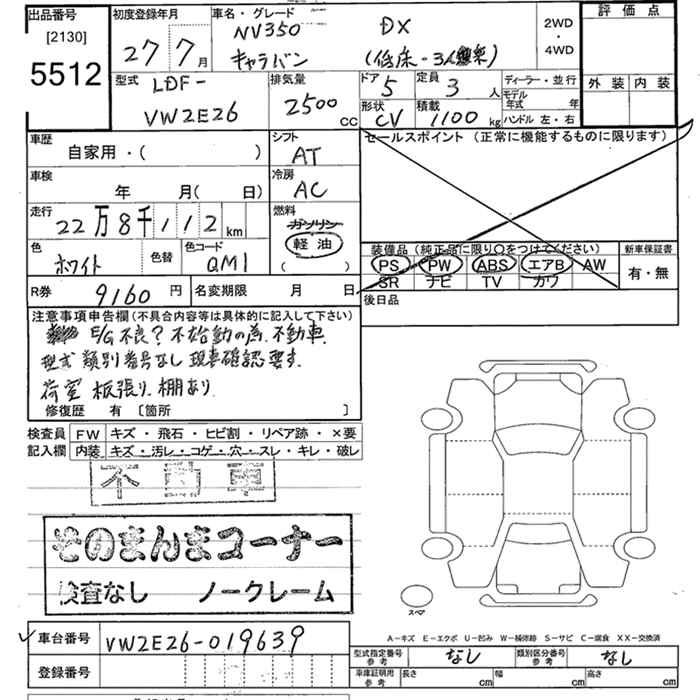 出品番号
[2130]
5512
初度登録年月
27 7月
車名・グレード
NV350
キャラバン
DX
(低床-3人乗)
2WD
・
4WD
評価点
外装 内装
型式
LDF-
VW2E26
排気量
2500 cc
ドア 5
定員 3 人
ディーラー・並行
モデル年式 年
形状 CV
積載 1100 kg
ハンドル 左・右
車歴
自家用・( )
シフト
AT
セールスポイント (正常に機能するものに限ります)
車検
年 月( 日)
冷房
AC
走行
22万8千112km
燃料
ガソリン
軽油
( )
色
ホワイト
色替
色コード
QM1
装備品(純正品に限り○をつけてください)
PS PW ABS エアB AW
SR ナビ TV カワ
新車保証書
有・無
R券 9160 円
名変期限 月 日
後日品
注意事項申告欄(不具合内容等は具体的に記入して下さい)
E/G不良?不始動の為、不動車、
型式 類別番号なし 現車確認要す.
荷室 板張り.棚あり
修復歴 有 [箇所 ]
検査員 FW キズ・飛石・ヒビ割・リペア跡・×要
記入欄 内装 キズ・汚レ・コゲ・穴・スレ・キレ・破レ
不動車
そのまんまコーナー
検査なし ノークレーム
スペア
A-キズ E-エクボ U-凹み W-補修跡 S-サビ C-腐食 XX-交換済
車台番号 VW2E26-019639
型式指定番号 参考 なし
類別区分番号 参考 なし
登録番号
車庫証明用 参考 長さ cm 幅 cm 高さ cm